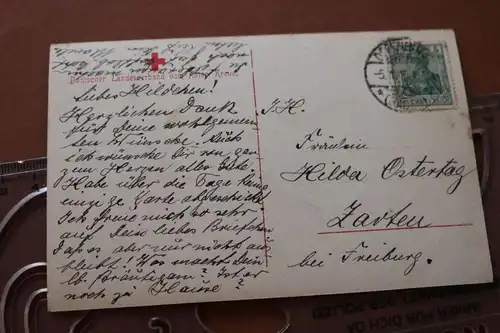 Badischer Landesverband vom Roten Kreuz.
Liebes Hildchen!
Herzlichen Dank
für Deine wohlgemein-
ten Wünsche. Auch
ich wünsche Dir von gan-
zem Herzen alles Gute.
Habe über die Tage keine
einzige Karte abgeschickt.
Ich freue mich so sehr
auf Dein liebes Briefchen
Dass es aber nur nicht aus
bleibt! Was macht Dein
lb. Bräutigam? Ist er
noch zu Hause?
I.H.
Fräulein
Hilda Ostertag
Zarten
bei Freiburg.